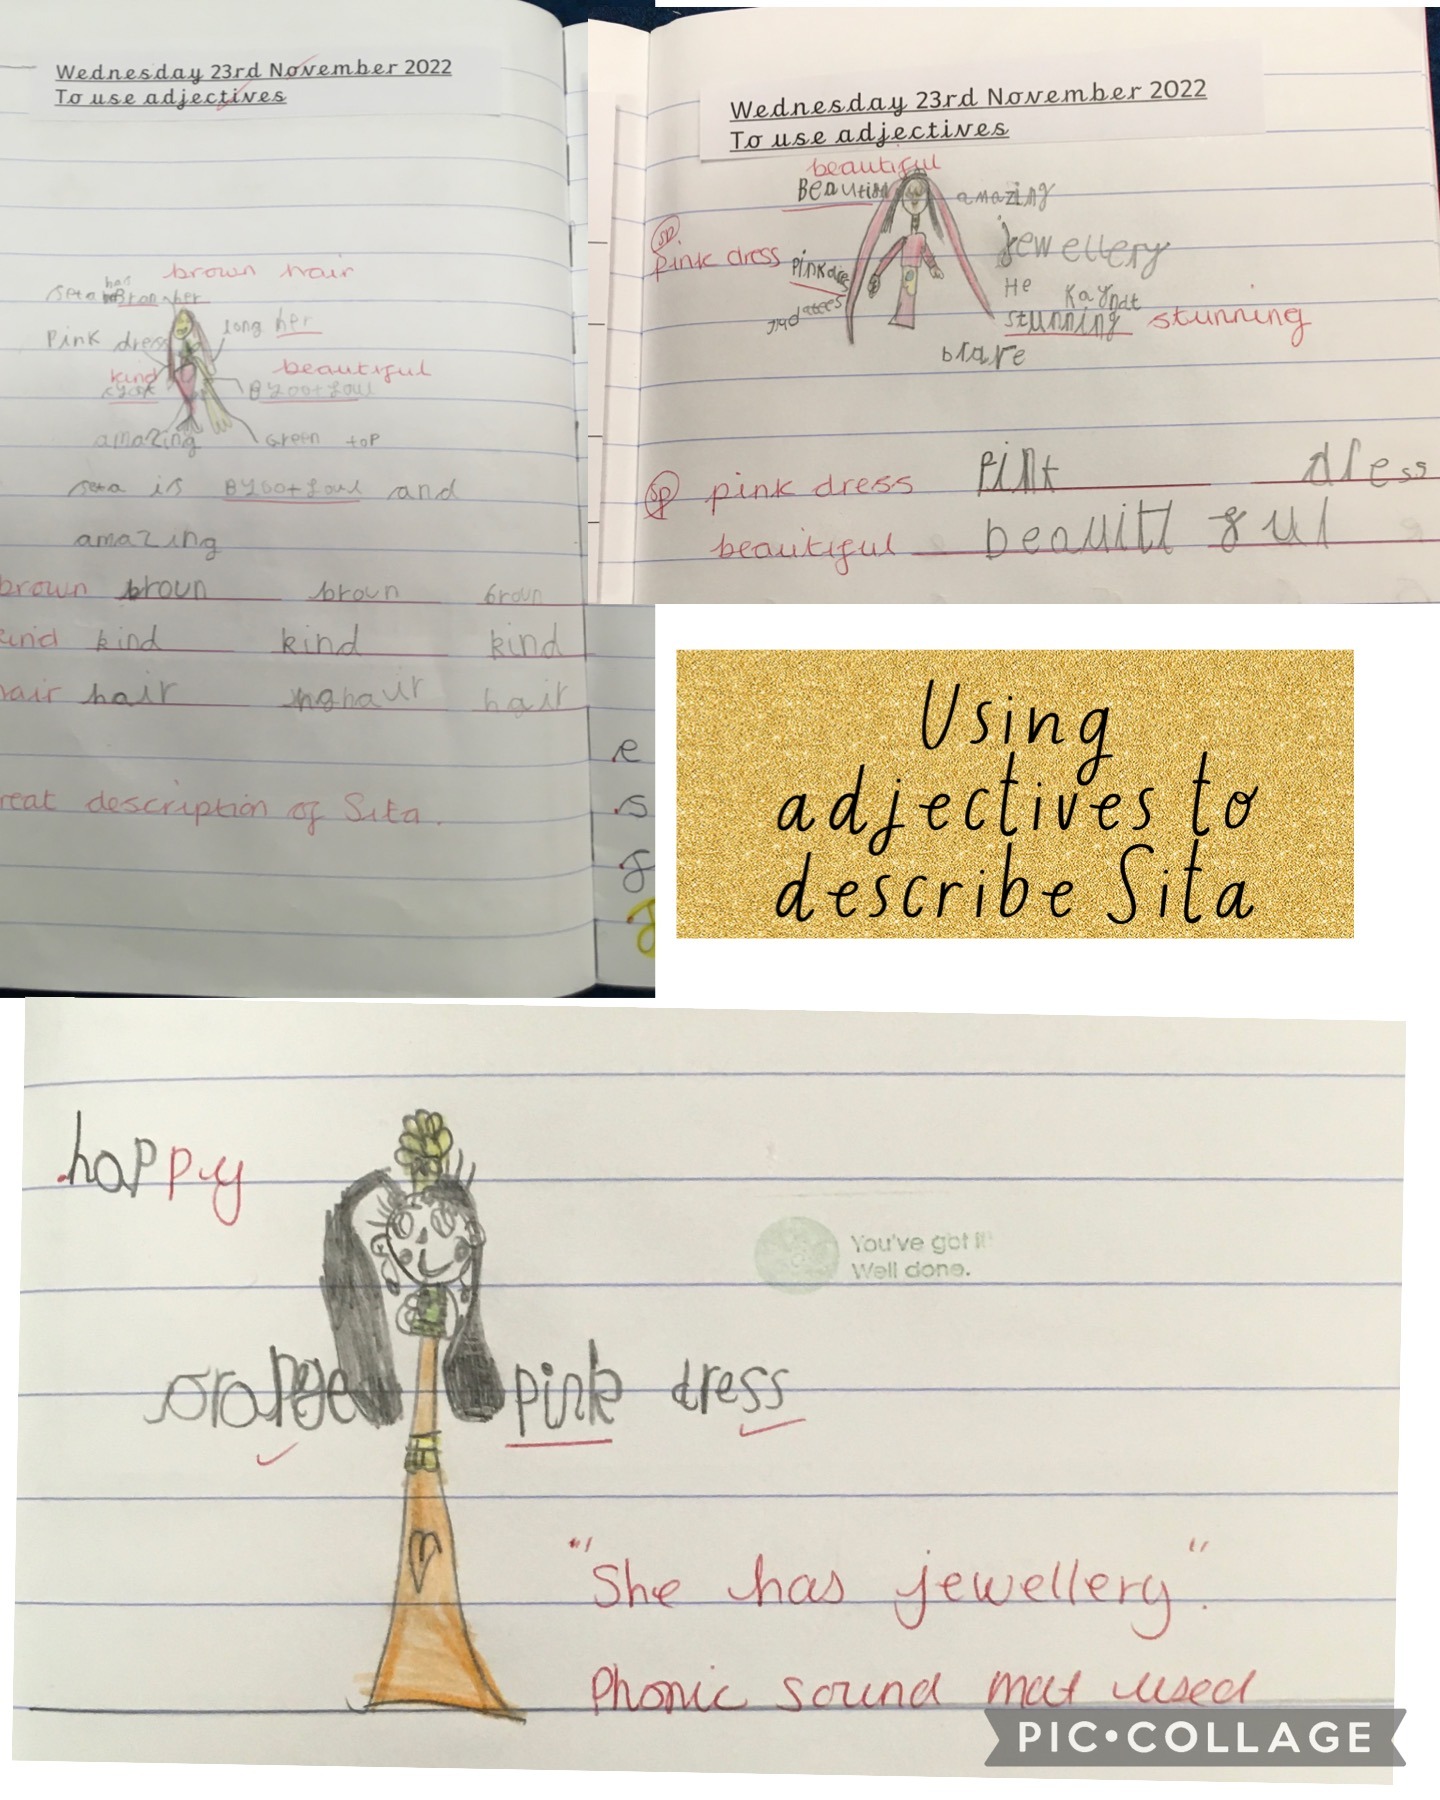 Wednesday 23rd November 2022
To use adjectives
brown hair
has
seta Bran her
Pink dress
long her
kind
beautiful
Byoot foul
amazing
Green top
seta is Byoot foul and
amazing
brown broun broun broun
kind kind kind
hair hair hair
reat description of Sita.
e
s
Wednesday 23rd November 2022
To use adjectives
beautiful
Beautiful
amazing
sp.
pink dress
Pink dres
jewellery
He
Kayndt
stunning stunning
brare
sp pink dress Pink dress
beautiful beautiful
Using
adjectives to
describe Sita
happy
You've got it
Well done.
orange
pink dress
"She has jewellery".
Phonic sound mat used
PIC•COLLAGE